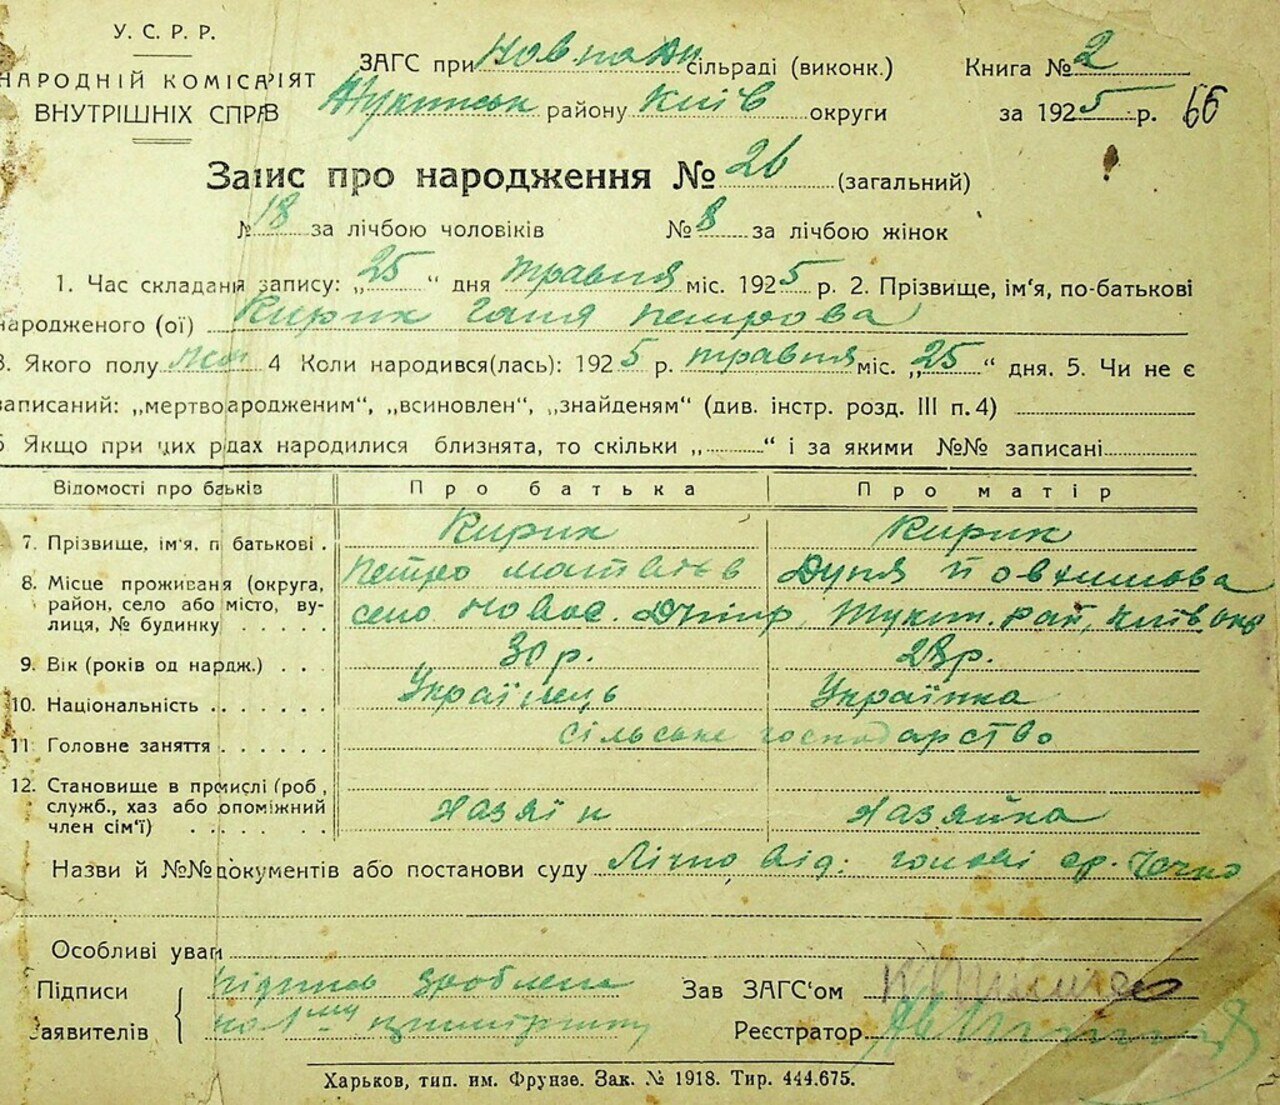 У. С. Р. Р.
НАРОДНІЙ КОМІСАРІЯТ
ВНУТРІШНІХ СПРАВ
ЗАГС при сільраді (виконк.) Книга № 2
району Київ округи за 1925 р. 66
Запис про народження № 26 (загальний)
№ 18 за лічбою чоловіків № 8 за лічбою жінок
1. Час складання запису: „25“ дня травня міс. 1925 р. 2. Прізвище, ім'я, по-батькові
народженого (ої) Кирик Галя Петрова
3. Якого полу жін 4 Коли народився(лась): 1925 р. травня міс. „25“ дня. 5. Чи не є
записаний: „мертвонародженим“, „всиновлен“, „знайденям“ (див. інстр. розд. III п. 4)
6 Якщо при цих родах народилися близнята, то скільки „ “ і за якими №№ записані
Відомості про батьків Про батька Про матір
7. Прізвище, ім'я, п батькові . Кирик Кирик
Петро Матвієв Дуня Йовхимова
8. Місце проживаня (округа, район, село або місто, вулиця, № будинку село Новос. Дніпр,
9. Вік (років од нардж.) . . . 30 р. 28 р.
10. Національність . . . . . . . Українець Українка
11 Головне заняття . . . . . . Сільське господарство
12. Становище в промислі (роб., служб., хаз або допоміжний член сім'ї) . . . . . . Хазяїн Хазяйка
Назви й №№ документів або постанови суду Лічно від. голові
Особливі уваги
Підписи Заявителів Підпись зроблена
Зав ЗАГС'ом
Реєстратор
Харьков, тип. им. Фрунзе. Зак. № 1918. Тир. 444.675.